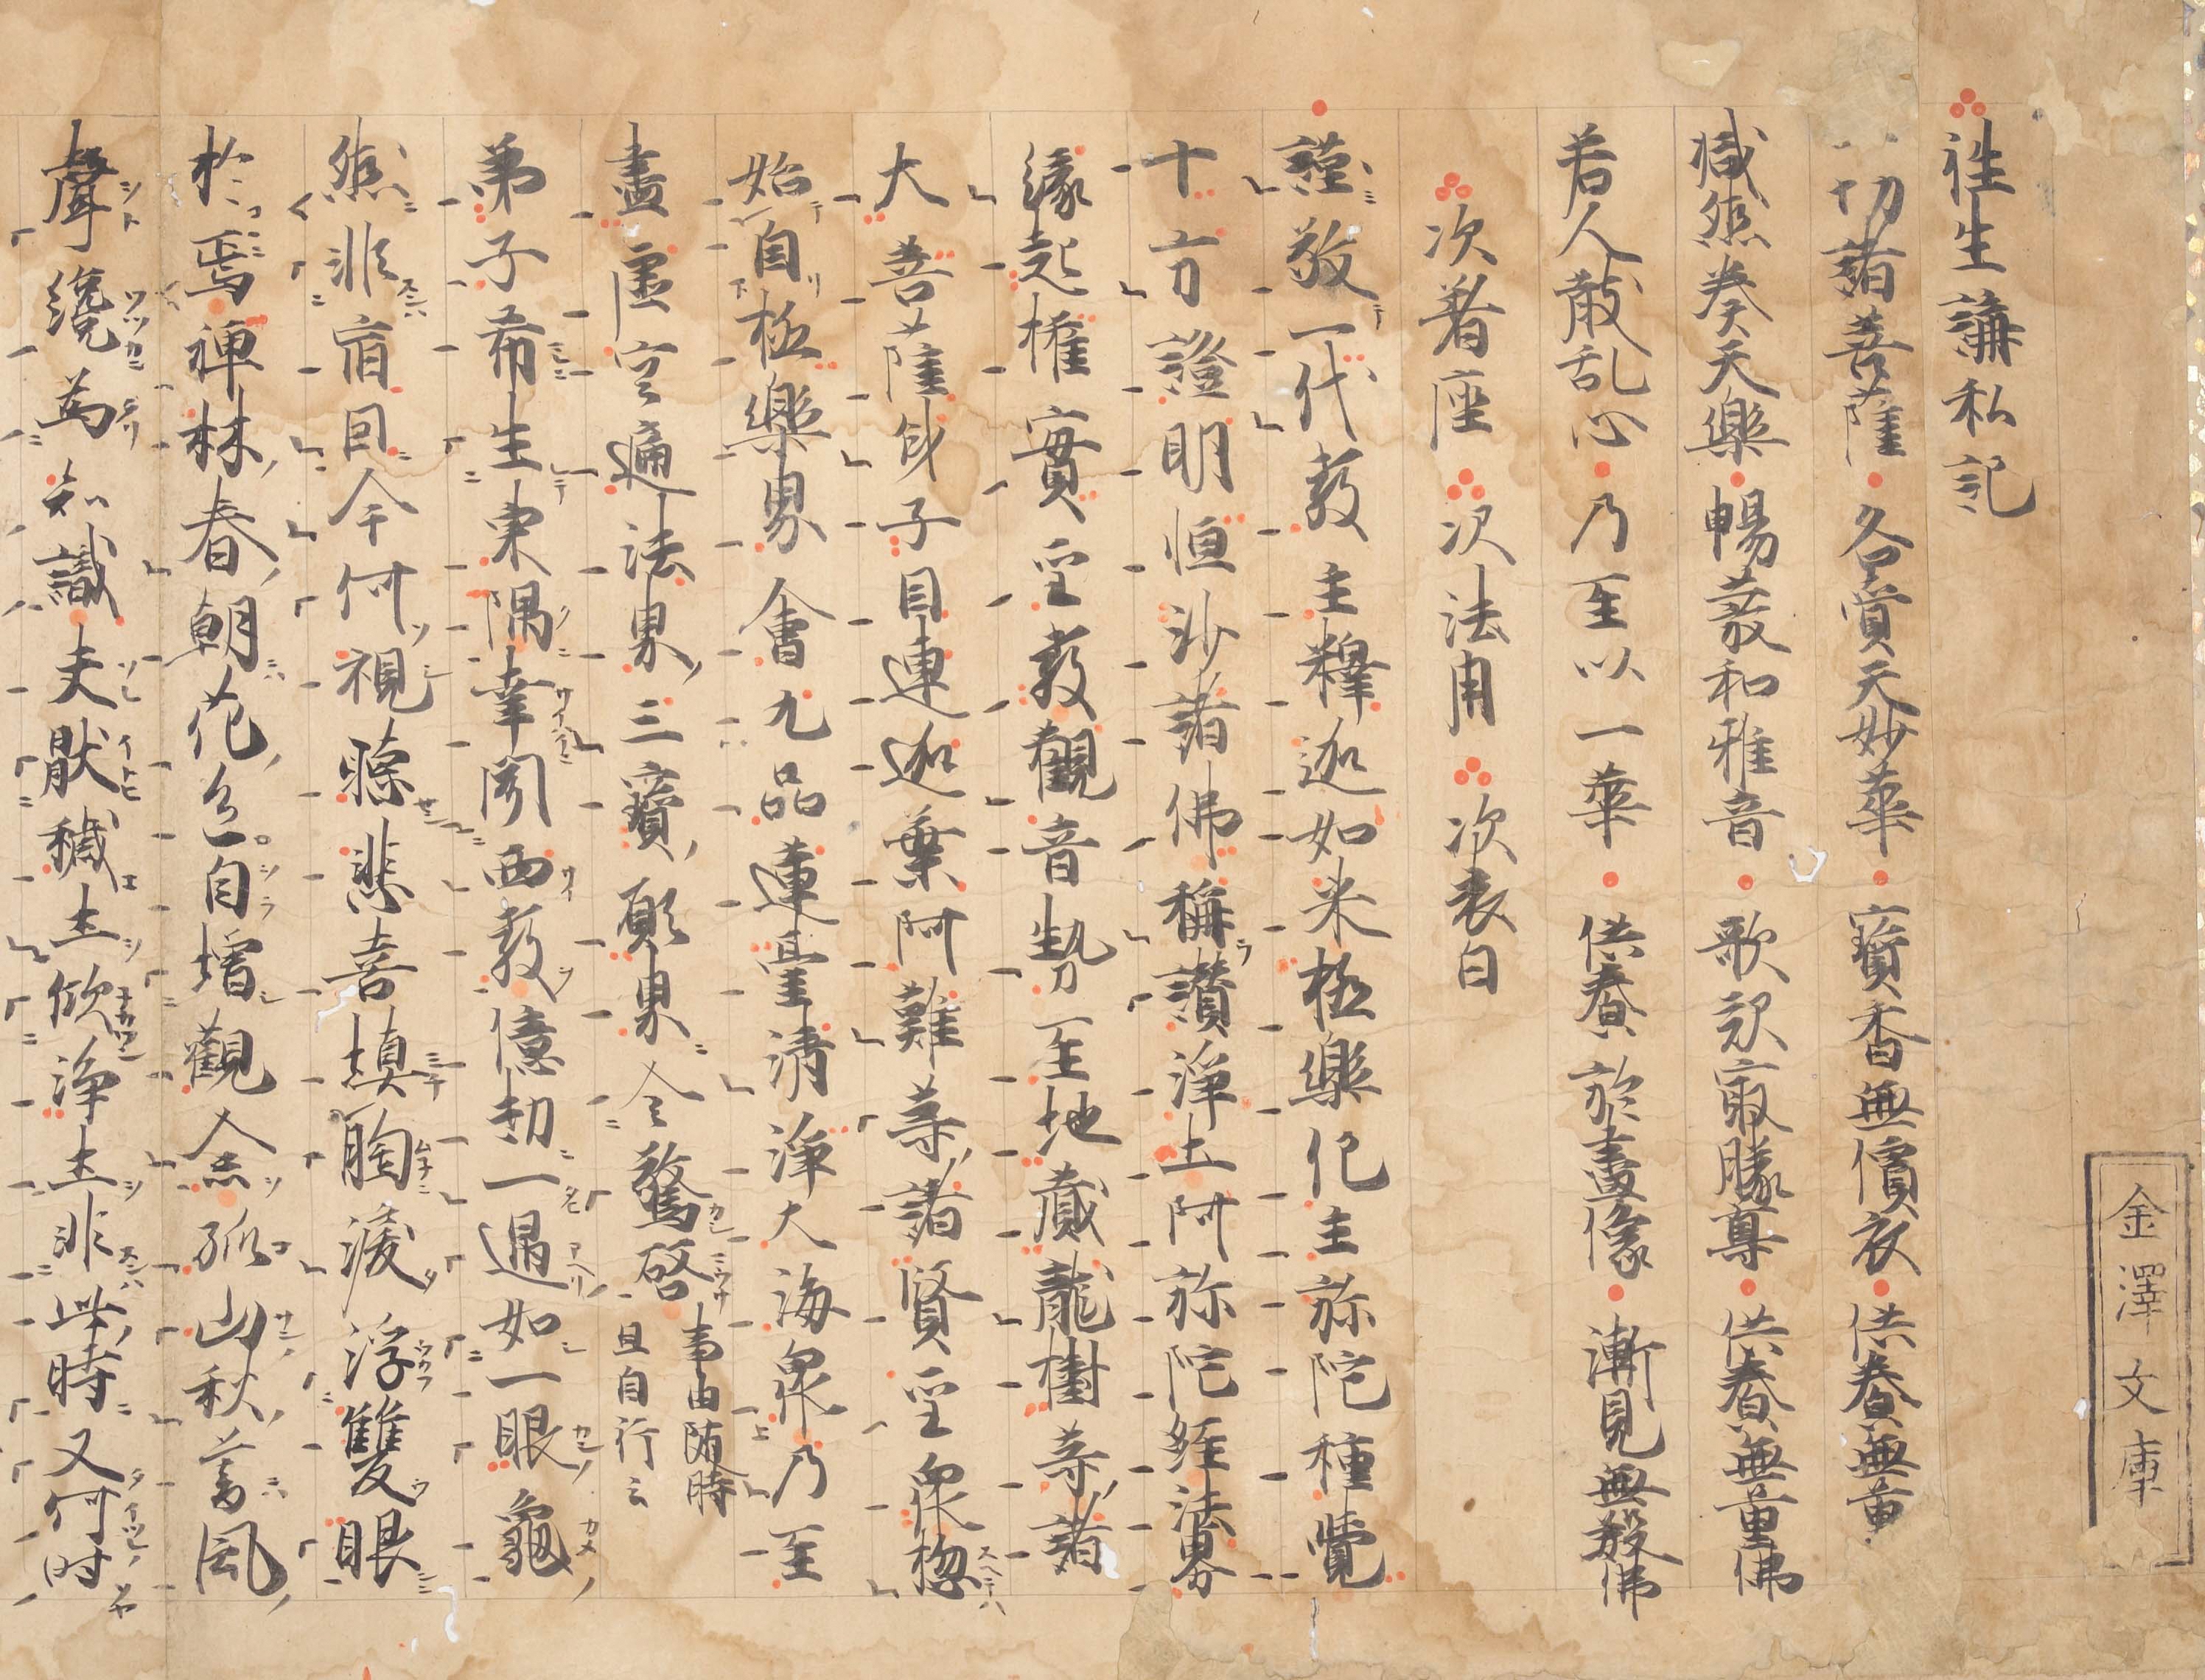 金澤文庫
往生講私記
一切諸菩薩 各賷天妙華 寶香無價衣 供養無量
咸然奏天樂 暢發和雅音 歌歎最勝尊 供養無量佛
若人散乱心 乃至以一華 供養於畫像 漸見無數佛
次著座 次法用 次表白
謹敬一代教主釋迦如来極樂化主弥陀種覺
十方證明恒沙諸佛稱讚淨土阿弥陀経法界
縁起權實聖教觀音勢至地蔵龍樹等諸
大菩薩身子目連迦葉阿難等諸賢聖衆惣
始自極樂界會九品蓮臺清淨大海衆乃至
盡虚空遍法界三寶願界令驚啓 事由随時 且自行云
弟子希生東隅幸聞西教億劫一遇如一眼龜
然非盲目今何視聽悲喜填胸涙浮雙眼
於焉禅林春朝花色自增觀念孤山秋暮風
聲纔為知識夫猒穢土欣淨土非此時又何时